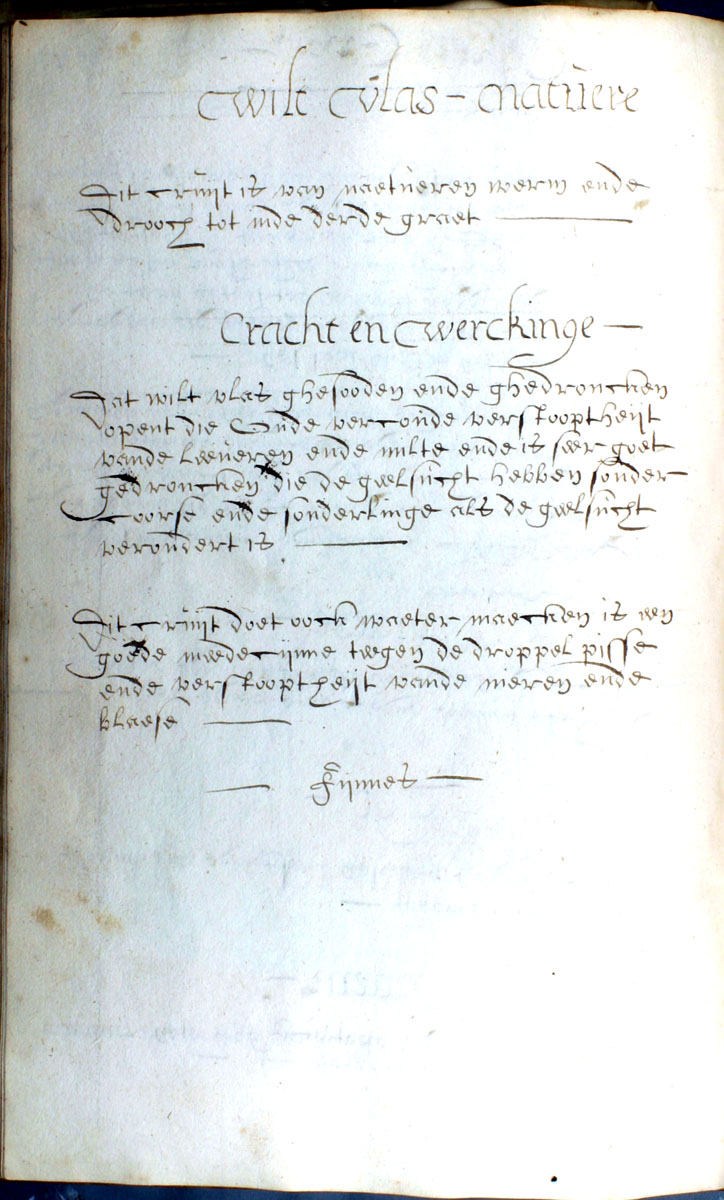 Wilt Vlas - Natuere
Dit cruijt is van naetueren werm ende
drooch tot inde derde graet
Cracht en Werckinge
Dat wilt vlas ghesooden ende ghedroncken
opent die verstooptheijt
vande Leeueren ende milte ende is seer goet
gedroncken die de geelsucht hebben sonder
Coorse ende sonderlinge als de geelsucht
veroudert is
Dit cruijt doet oock waeter maecken is een
goede medecijnne tegen de droppel pisse
ende verstooptheijt vande nieren ende
blaese
Fijnnes